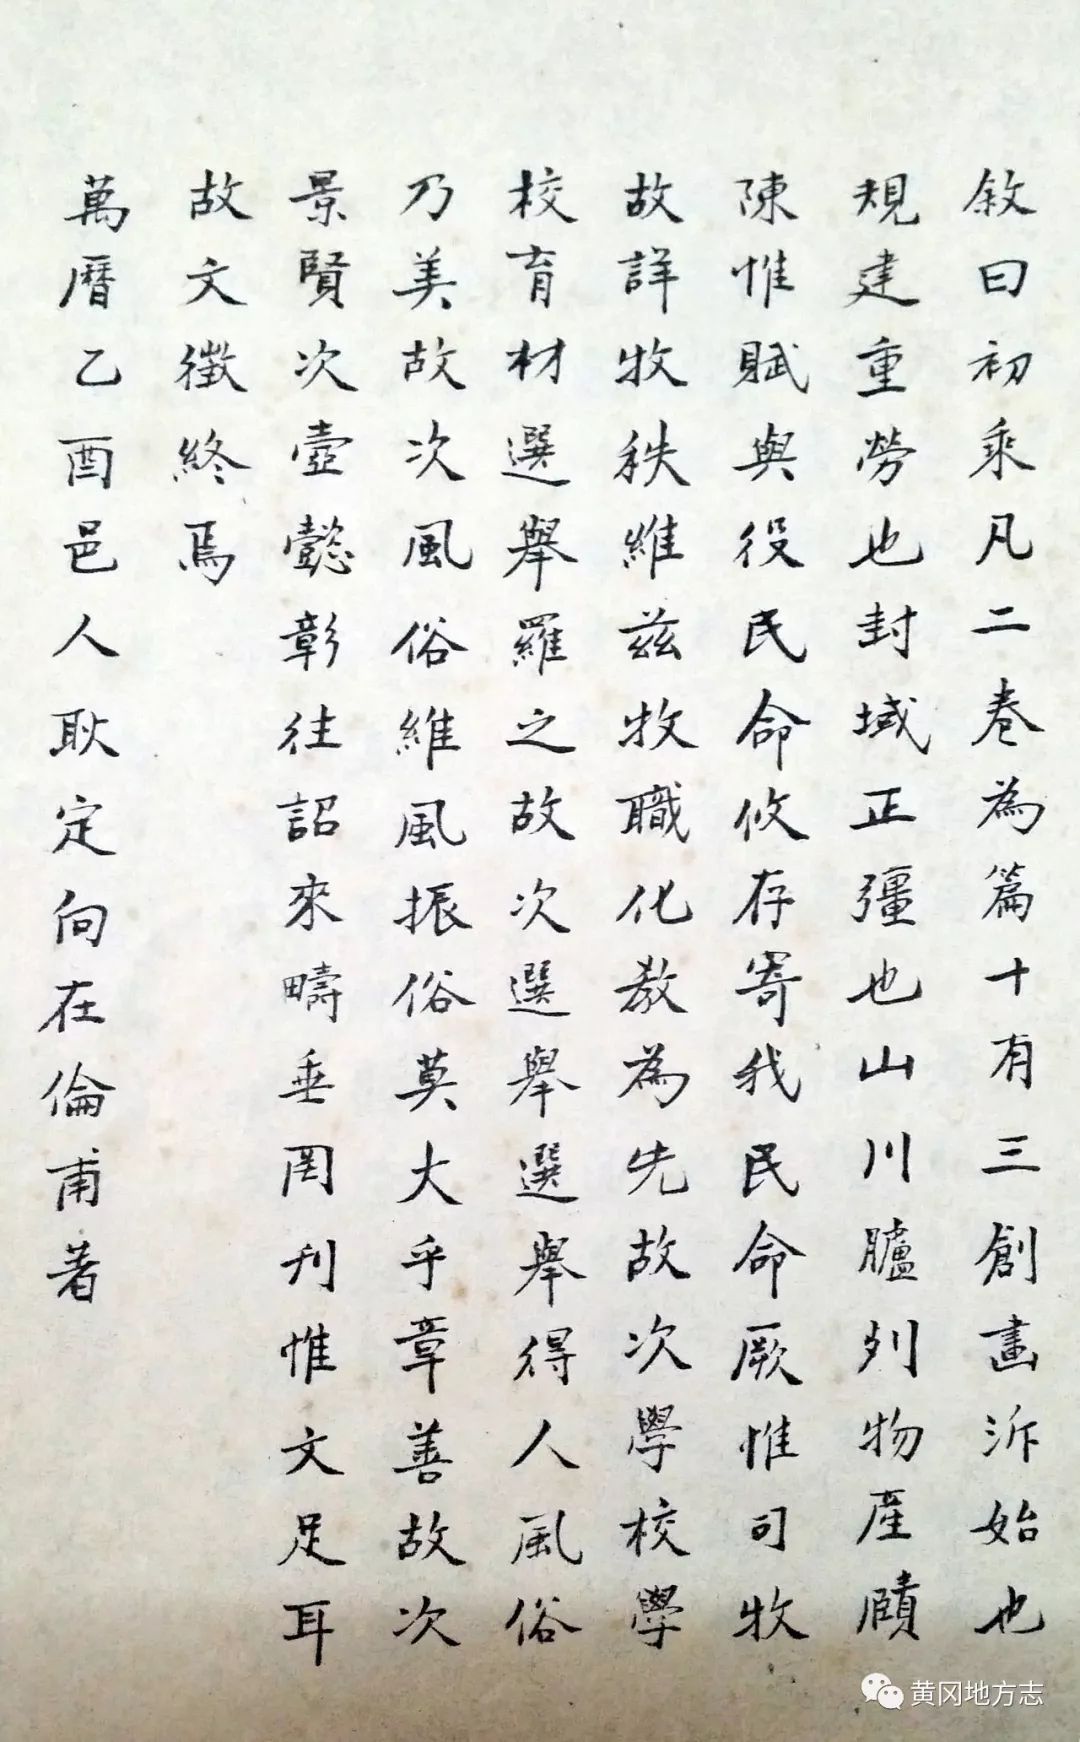 敘曰初乘凡二卷為篇十有三創畫泝始也
規建重勞也封域正彊也山川臚列物產賾
陳惟賦與役民命攸存寄我民命厥惟司牧
故詳牧秩維茲牧職化教為先故次學校學
校育材選舉羅之故次選舉選舉得人風俗
乃美故次風俗維風振俗莫大乎章善故次
景賢次壼懿彰往詔來疇垂罔刋惟文足耳
故文徵終焉
萬曆乙酉邑人耿定向在倫甫著
黄冈地方志